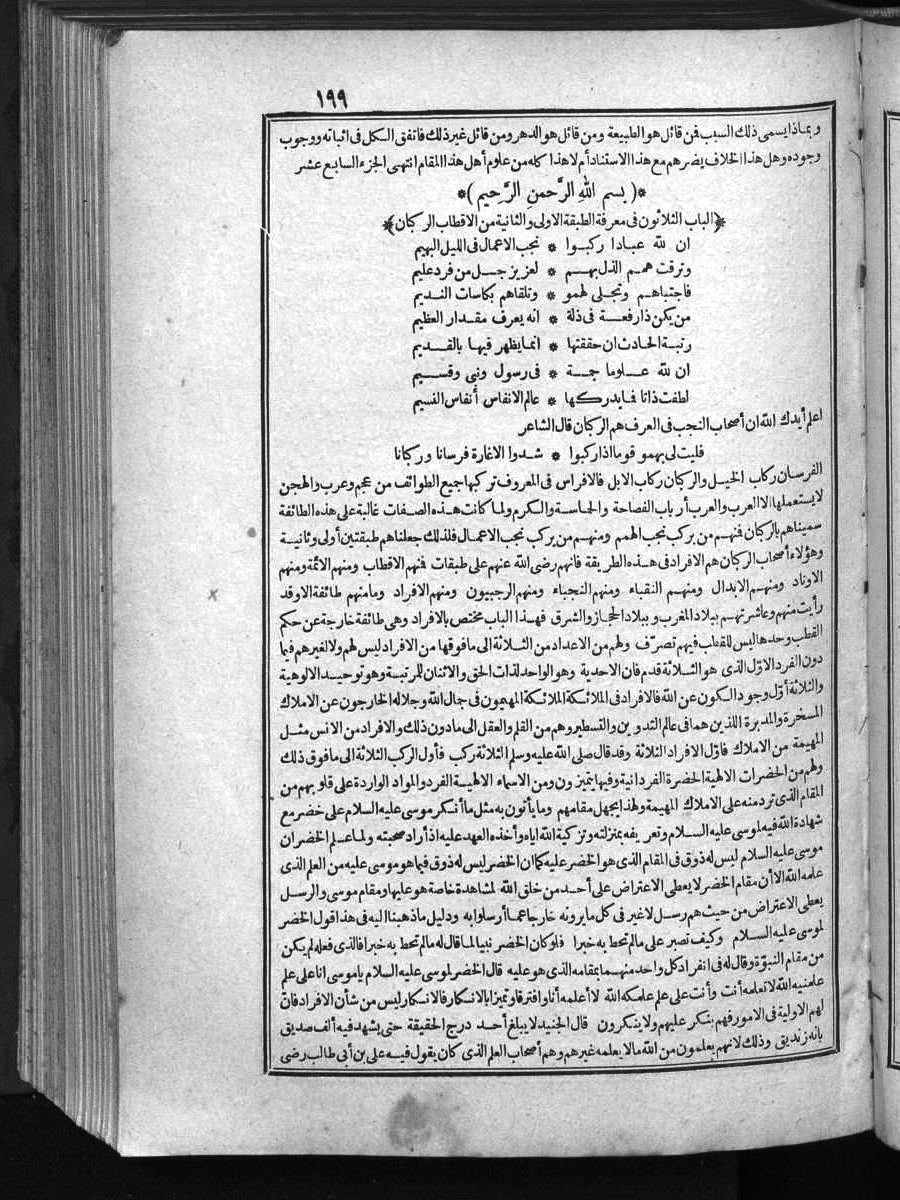 ١٩٩
وبماذا يسمى ذلك السبب فمن قائل هو الطبيعة ومن قائل هو الدهر ومن قائل غير ذلك فاتفق الكل فى اثباته ووجوب
وجوده وهل هذا الخلاف يضرهم مع هذا الاستناد أم لا هذا كله من علوم أهل هذا المقام انتهى الجزء السابع عشر
*( بسم الله الرَّحمنِ الرَّحيمِ )*
﴿الباب الثلاثون فى معرفة الطبقة الاولى والثانية من الاقطاب الركبان﴾
ان لله عبادا ركبوا * نجب الاعمال فى الليل البهيم
وترقت همم الذل بهم * لعزيز جل من فرد عليم
فاجتباهم وتجلى لهمو * وتلقاهم بكاسات النديم
من يكن ذا رفعة فى ذلة * انه يعرف مقدار العظيم
رتبة الحادث ان حققتها * انما يظهر فيها بالقديم
ان لله علوما جمة * فى رسول ونبى وقسيم
لطفت ذاتا فما يدركها * عالم الانفاس أنفاس النسيم
اعلم أيدك الله ان أصحاب النجب فى العرف هم الركبان قال الشاعر
فليت لى بهمو قوما اذا ركبوا * شدوا الاغارة فرسانا وركبانا
الفرسان ركاب الخيل والركبان ركاب الابل فالافراس فى المعروف تركبها جميع الطوائف من عجم وعرب والهجن
لا يستعملها الا العرب والعرب أرباب الفصاحة والحماسة والكرم ولما كانت هذه الصفات غالبة على هذه الطائفة
سميناهم بالركبان فمنهم من يركب نجب الهمم ومنهم من يركب نجب الاعمال فلذلك جعلناهم طبقتين أولى وثانية
وهؤلاء أصحاب الركبان هم الافراد فى هذه الطريقة فانهم رضى الله عنهم على طبقات فمنهم الاقطاب ومنهم الائمة ومنهم
الاوتاد ومنهم الابدال ومنهم النقباء ومنهم النجباء ومنهم الرجبيون ومنهم الافراد وما منهم طائفة الا وقد
رأيت منهم وعاشرتهم ببلاد المغرب وببلاد الحجاز والشرق فهذا الباب مختص بالافراد وهى طائفة خارجة عن حكم
القطب وحدها ليس للقطب فيهم تصرّف ولهم من الاعداد من الثلاثة الى ما فوقها من الافراد ليس لهم ولا لغيرهم فيما
دون الفرد الاوّل الذى هو الثلاثة قدم فان الاحدية وهو الواحد لذات الحق والاثنان للمرتبة وهو توحيد الالوهية
والثلاثة أوّل وجود الكون عن الله فالافراد فى الملائكة الملائكة المهيمون فى جمال الله وجلاله الخارجون عن الاملاك
المسخرة والمدبرة اللذين هما فى عالم التدوين والتسطير وهم من القلم والعقل الى ما دون ذلك والافراد من الانس مثل
المهيمة من الاملاك فاوّل الافراد الثلاثة وقد قال صلى الله عليه وسلم الثلاثة ركب فأول الركب الثلاثة الى ما فوق ذلك
ولهم من الحضرات الالهية الحضرة الفردانية وفيها يتميزون ومن الاسماء الالهية الفرد والمواد الواردة على قلوبهم من
المقام الذى ترد منه على الاملاك المهيمة ولهذا يجهل مقامهم وما يأتون به مثل ما أنكر موسى عليه السلام على خضر مع
شهادة الله فيه لموسى عليه السلام وتعريفه بمنزلته وتزكية الله اياه وأخذه العهد عليه اذ أراد صحبته ولما علم الخضر ان
موسى عليه السلام ليس له ذوق فى المقام الذى هو الخضر عليه كما ان الخضر ليس له ذوق فيما هو موسى عليه من العلم الذى
علمه الله الا أن مقام الخضر لا يعطى الاعتراض على أحد من خلق الله لمشاهدة خاصة هو عليها ومقام موسى والرسل
يعطى الاعتراض من حيث هم رسل لا غير فى كل ما يرونه خارجا عما أرسلوا به ودليل ما ذهبنا اليه فى هذا قول الخضر
لموسى عليه السلام وكيف تصبر على مالم تحط به خبرا فلو كان الخضر نبيا لما قال له مالم تحط به خبرا فالذى فعله لم يكن
من مقام النبوّة وقال له فى انفراد كل واحد منهما بمقامه الذى هو عليه قال الخضر لموسى عليه السلام يا موسى انا على علم
علمنيه الله لا تعلمه أنت وأنت على علم علمكه الله لا أعلمه أنا وافترقا وتميزا بالانكار فالانكار ليس من شأن الافراد فانّ
لهم الاولية فى الامور فهم ينكر عليهم ولا ينكرون قال الجنيد لا يبلغ أحد درج الحقيقة حتى يشهد فيه ألف صديق
بانه زنديق وذلك لانهم يعلمون من الله ما لا يعلمه غيرهم وهم أصحاب العلم الذى كان يقول فيه على بن أبى طالب رضى